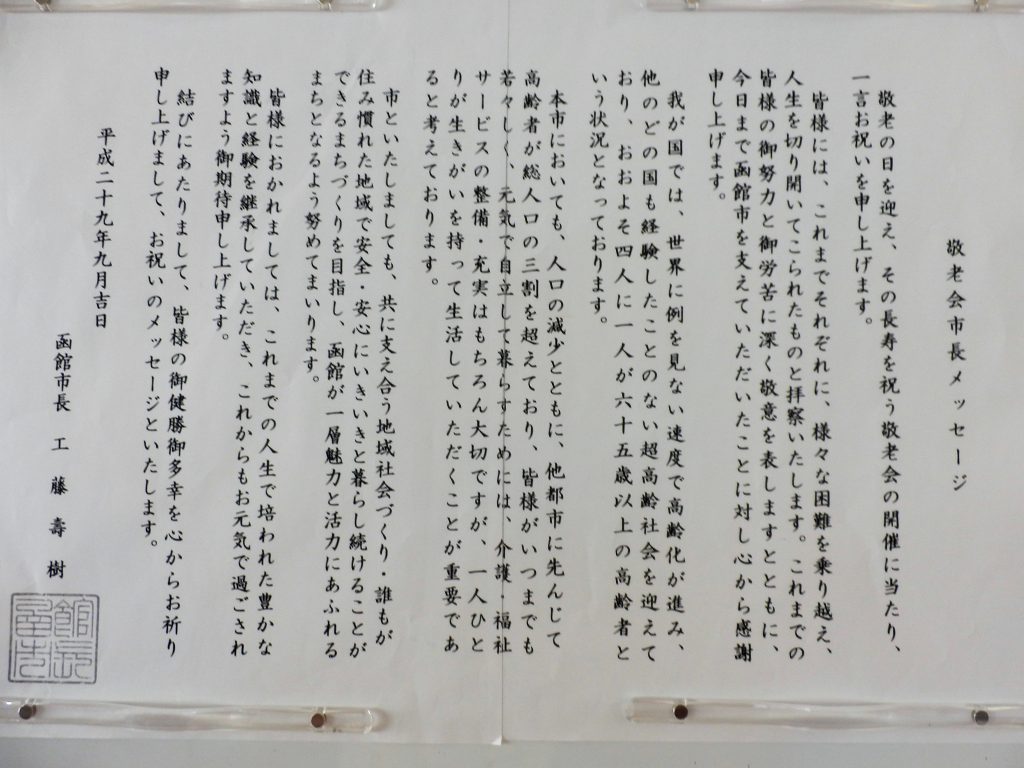 敬老会市長メッセージ
敬老の日を迎え、その長寿を祝う敬老会の開催に当たり、
一言お祝いを申し上げます。
皆様には、これまでそれぞれに、様々な困難を乗り越え、
人生を切り開いてこられたものと拝察いたします。これまでの
皆様の御努力と御労苦に深く敬意を表しますとともに、
今日まで函館市を支えていただいたことに対し心から感謝
申し上げます。
我が国では、世界に例を見ない速度で高齢化が進み、
他のどの国も経験したことのない超高齢社会を迎えて
おり、おおよそ四人に一人が六十五歳以上の高齢者と
いう状況となっております。
本市においても、人口の減少とともに、他都市に先んじて
高齢者が総人口の三割を超えており、皆様がいつまでも
若々しく、元気で自立して暮らすためには、介護・福祉
サービスの整備・充実はもちろん大切ですが、一人ひと
りが生きがいを持って生活していただくことが重要であ
ると考えております。
市といたしましても、共に支え合う地域社会づくり・誰もが
住み慣れた地域で安全・安心にいきいきと暮らし続けることが
できるまちづくりを目指し、函館が一層魅力と活力にあふれる
まちとなるよう努めてまいります。
皆様におかれましては、これまでの人生で培われた豊かな
知識と経験を継承していただき、これからもお元気で過ごされ
ますよう御期待申し上げます。
結びにあたりまして、皆様の御健勝御多幸を心からお祈り
申し上げまして、お祝いのメッセージといたします。
平成二十九年九月吉日
函館市長 工藤壽樹